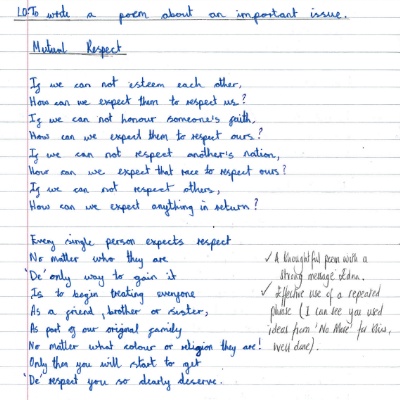 LO: To write a poem about an important issue.
Mutual Respect
If we can not esteem each other,
How can we expect them to respect us?
If we can not honour someone's faith,
How can we expect them to respect ours?
If we can not respect another's nation,
How can we expect that race to respect ours?
If we can not respect others,
How can we expect anything in return?
Every single person expects respect
No matter who they are
'De' only way to gain it
Is to begin treating everyone
As a friend, brother or sister,
As part of our original family
No matter what colour or religion they are!
Only then you will start to get
'De' respect you so dearly deserve.
✓ A thoughtful poem with a
strong message Edna.
✓ Effective use of a repeated
phrase (I can see you used
ideas from 'No More' for this,
well done).